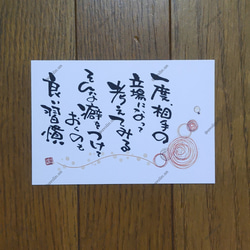 一度、相手の
立場になって
考えてみる
そんな癖をつけて
おくのも
良い習慣